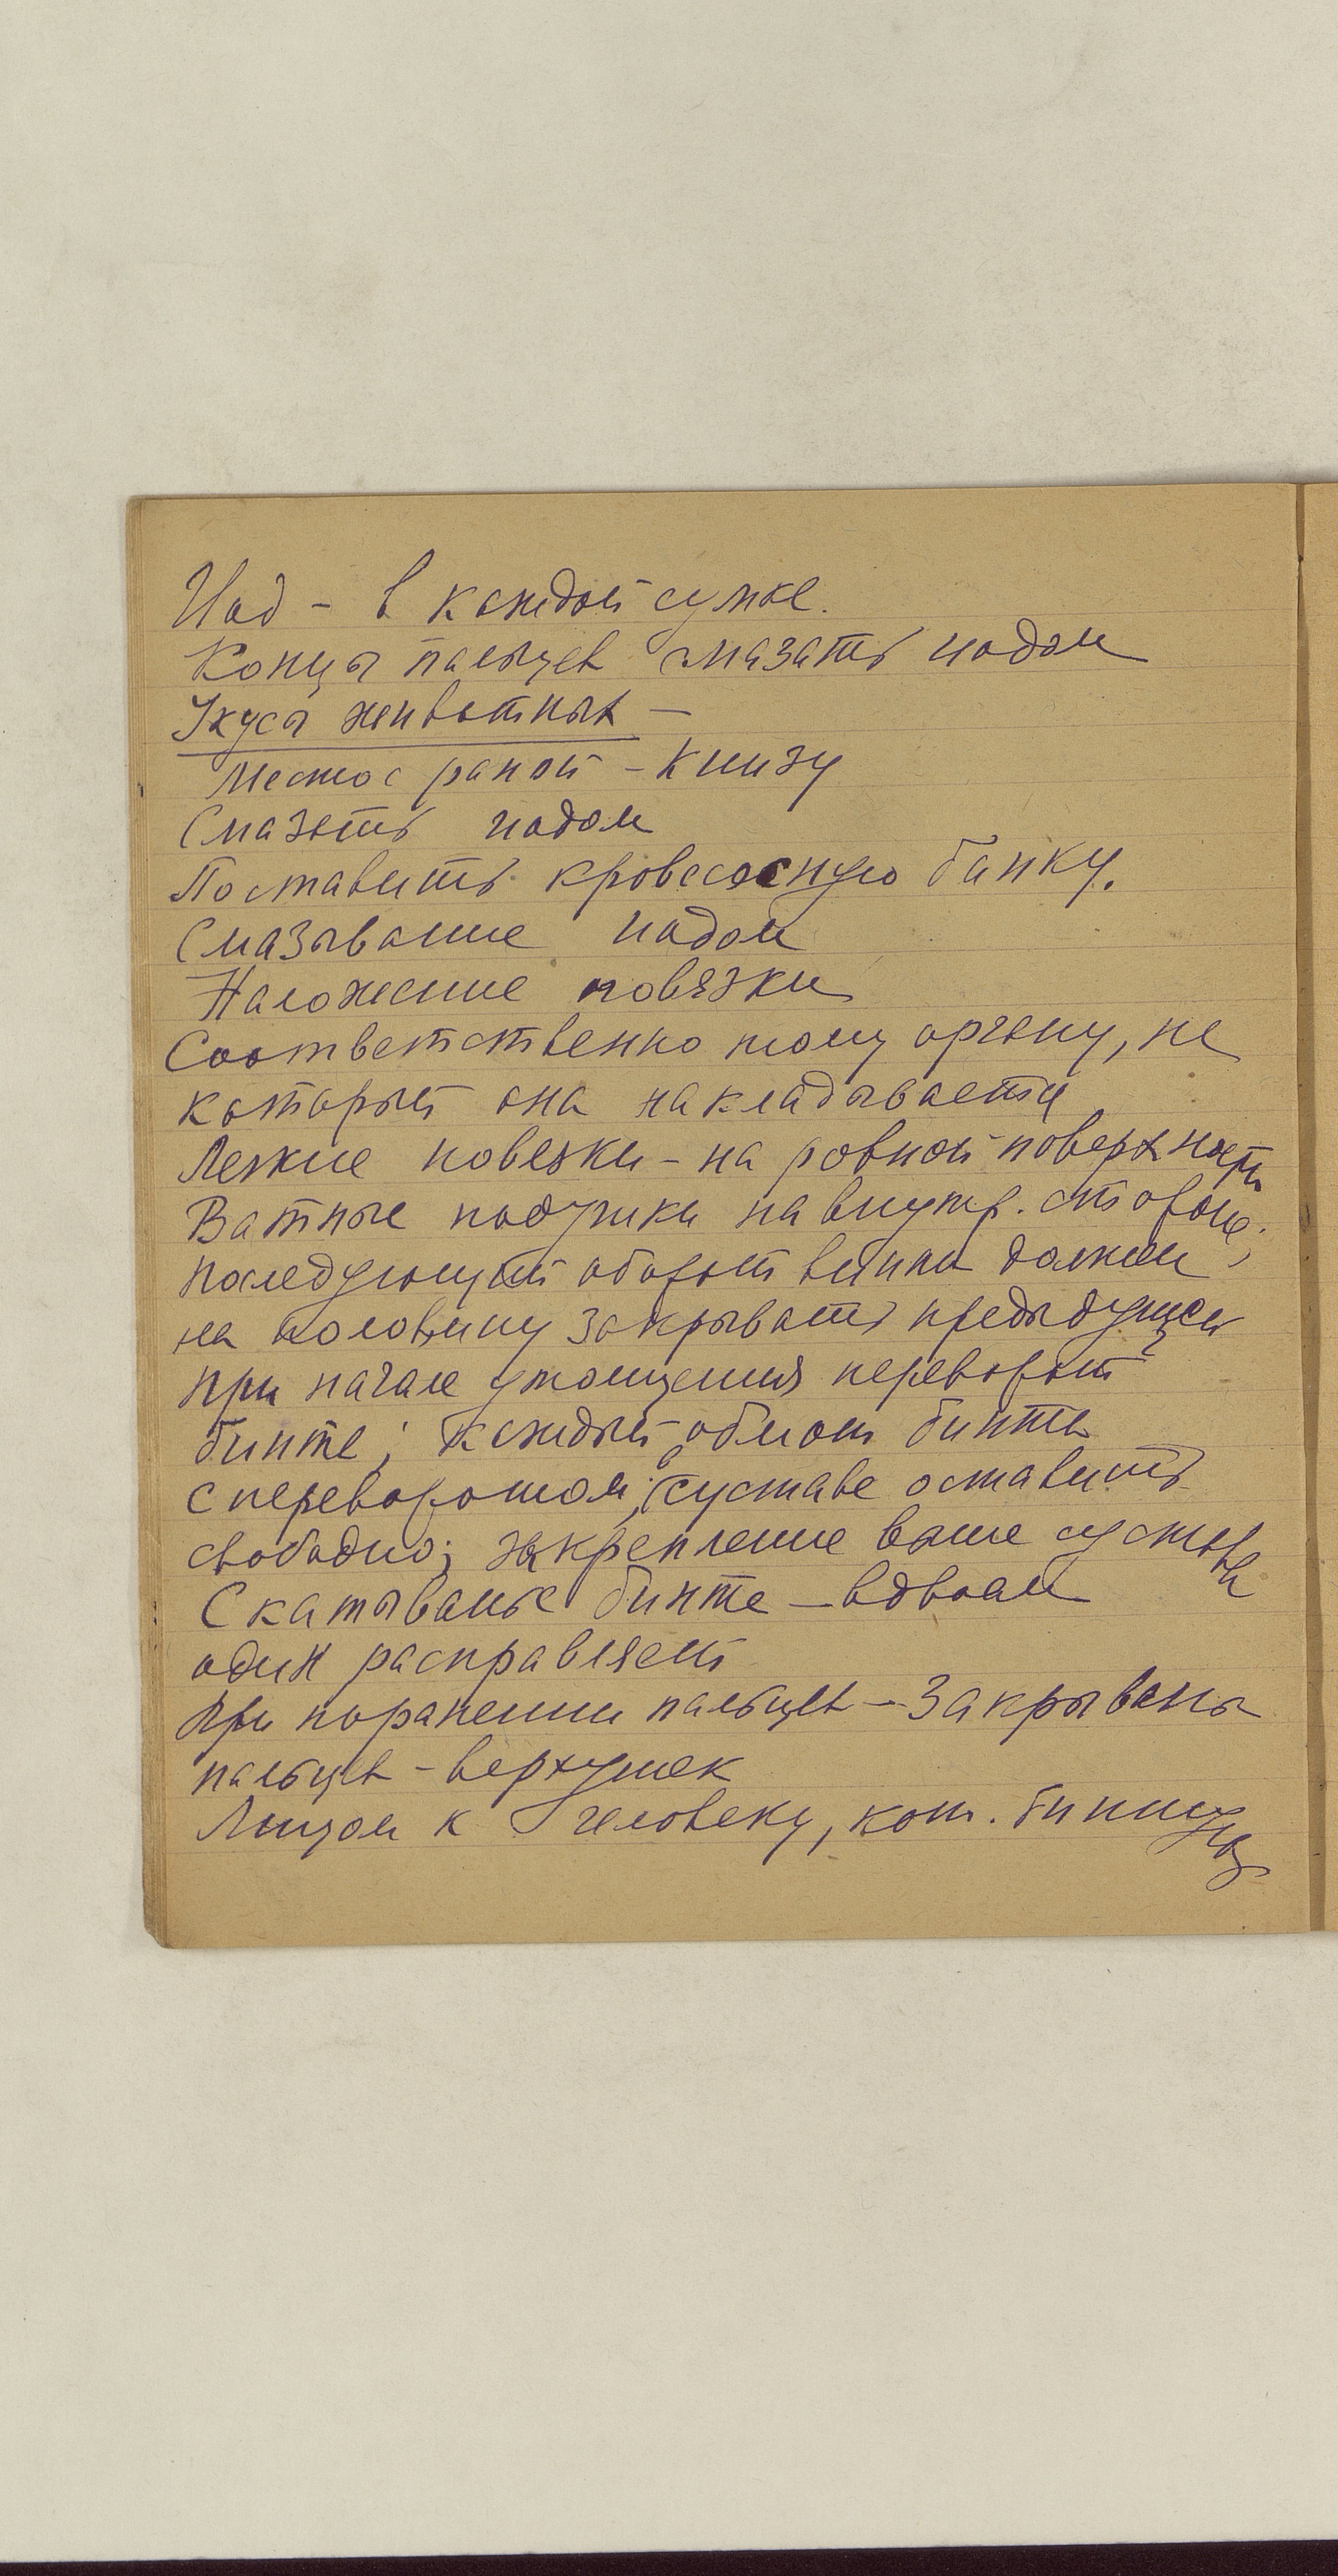 Иод - в каждой сумке.
Концы пальцев смазать иодом
Укусы животных -
Место с раной - книзу
Смазать иодом
Поставить кровесосную банку.
Смазывание иодом
Наложение повязки
Соответственно тому органу, на
который она накладывается
Легкие повязки - на ровной поверхности
Ватные подушки на внутр. стороне;
последующий оборот бинта должен
на половину закрывать предыдущий
при начале утолщения переворот
бинта; каждый обмот бинта
с переворотом; суставе оставить
свободно; закрепление выше сустава
Скатыванье бинта - вдвоем
один расправляет
При поранении пальцев - закрываны
пальцев - верхушек
Лицом к человеку, кот. бинтуют